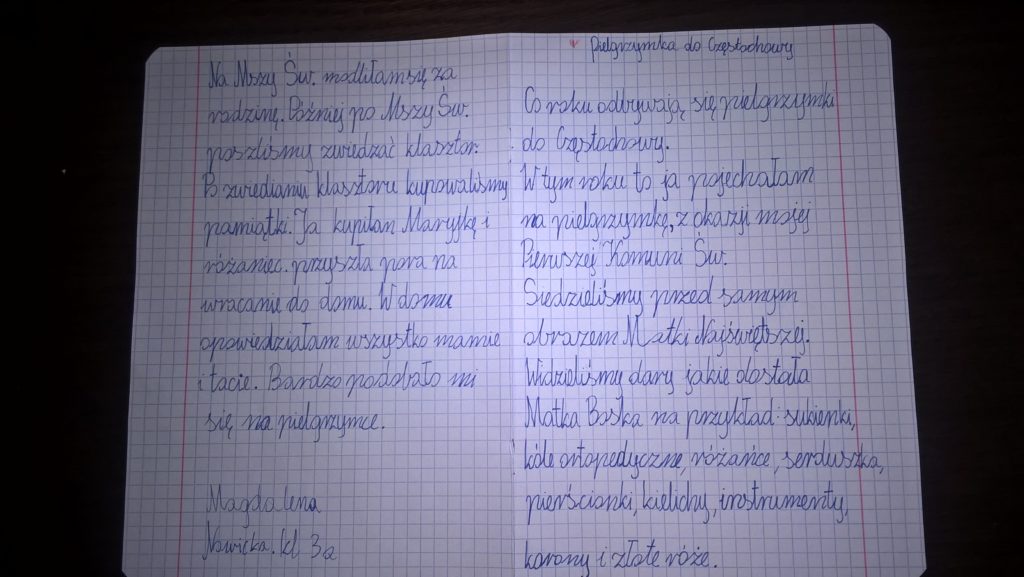 Pielgrzymka do Częstochowy
Co roku odbywają się pielgrzymki
do Częstochowy.
W tym roku to ja pojechałam
na pielgrzymkę, z okazji mojej
Pierwszej Komuni Św.
Siedzieliśmy przed samym
obrazem Matki Najświętszej.
Widzieliśmy dary jakie dostała
Matka Boska na przykład: sukienki,
kóle ortopedyczne, różańce, serduszka,
pierścionki, kielichy, instrumenty,
korony i złote róże.
Na Mszy Św. modliłam się za
rodzinę. Później po Mszy Św.
poszliśmy zwiedzać klasztor.
Po zwiedianiu klasztoru kupowaliśmy
pamiątki. Ja kupiłan Maryjkę i
różaniec. przyszła pora na
wracanie do domu. W domu
opowiedziałam wszystko mamie
i tacie. Bardzo podobało mi
się na pielgrzymce.
Magdalena
Nowicka. kl 3a